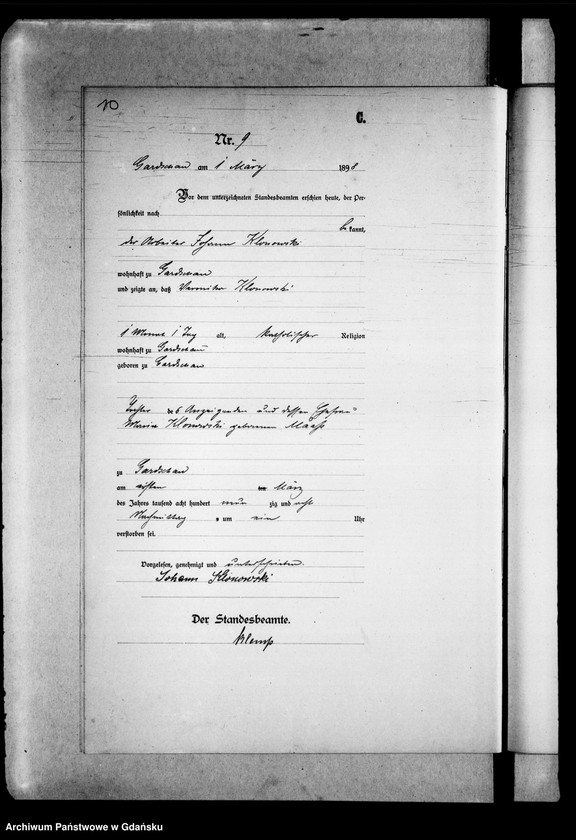 10
C.
Nr. 9
Gardschau am 1 März 1898
Vor dem unterzeichneten Standesbeamten erschien heute, der Per-
sönlichkeit nach
be kannt,
der Arbeiter Johann Klonowski
wohnhaft zu Gardschau
und zeigte an, daß Veronika Klonowski
1 Monat 1 Tag alt, katholischer Religion
wohnhaft zu Gardschau
geboren zu Gardschau
Tochter des Anzeigenden und dessen Ehefrau
Maria Klonowski geborenen Maaß
zu Gardschau
am ersten März
des Jahres tausend acht hundert neun zig und acht
Nachmittag s um ein Uhr
verstorben sei.
Vorgelesen, genehmigt und unterschrieben.
Johann Klonowski
Der Standesbeamte.
Klemp
Archiwum Państwowe w Gdańsku